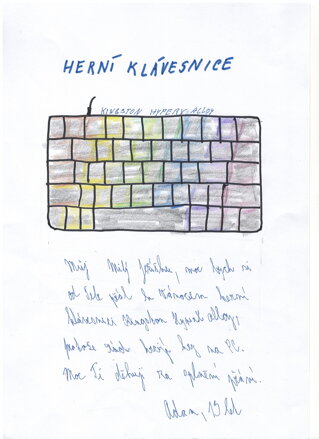 HERNÍ KLÁVESNICE
KINGSTON HYPERX ALLOY
Můj Milý Ježíšku, moc bych si
od Tebe přál k Vánocům herní
klávesnici Kingston HyperX alloy,
protože rád hraji hry na PC.
Moc Ti děkuji za splnění přání.
Adam, 15 let